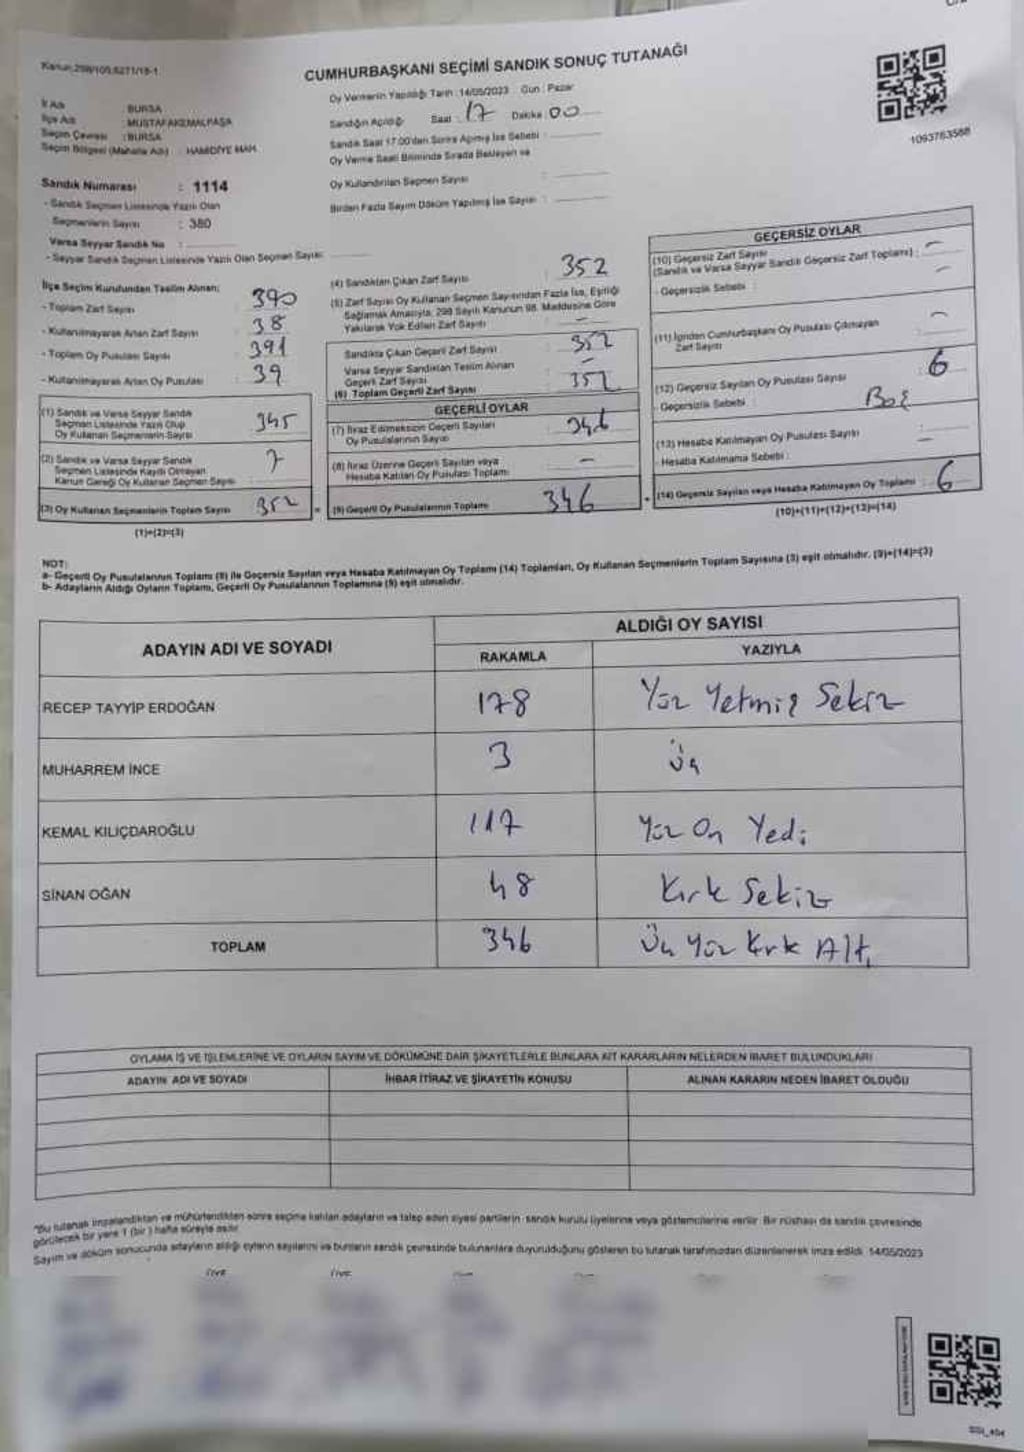 Kanun:298/105,6271/18-1
CUMHURBAŞKANI SEÇİMİ SANDIK SONUÇ TUTANAĞI
1093763588
İl Adı : BURSA
İlçe Adı : MUSTAFAKEMALPAŞA
Seçim Çevresi : BURSA
Seçim Bölgesi (Mahalle Adı) : HAMİDİYE MAH.
Sandık Numarası : 1114
- Sandık Seçmen Listesinde Yazılı Olan
Seçmenlerin Sayısı : 380
Varsa Seyyar Sandık No :
- Seyyar Sandık Seçmen Listesinde Yazılı Olan Seçmen Sayısı:
Oy Vermenin Yapıldığı Tarih : 14/05/2023 Gün : Pazar
Sandığın Açıldığı Saat : 17 Dakika : 00
Sandık Saat 17.00'den Sonra Açılmış İse Sebebi :
Oy Verme Saati Bitiminde Sırada Bekleyen ve
Oy Kullandırılan Seçmen Sayısı :
Birden Fazla Sayım Döküm Yapılmış İse Sayısı :
İlçe Seçim Kurulundan Teslim Alınan:
- Toplam Zarf Sayısı : 390
- Kullanılmayarak Artan Zarf Sayısı : 38
- Toplam Oy Pusulası Sayısı : 391
- Kullanılmayarak Artan Oy Pusulası : 39
(1) Sandık ve Varsa Seyyar Sandık
Seçmen Listesinde Yazılı Olup
Oy Kullanan Seçmenlerin Sayısı : 345
(2) Sandık ve Varsa Seyyar Sandık
Seçmen Listesinde Kayıtlı Olmayan
Kanun Gereği Oy Kullanan Seçmen Sayısı : 7
(3) Oy Kullanan Seçmenlerin Toplam Sayısı : 352
(1)+(2)=(3)
(4) Sandıktan Çıkan Zarf Sayısı : 352
(5) Zarf Sayısı Oy Kullanan Seçmen Sayısından Fazla İse, Eşitliği
Sağlamak Amacıyla, 298 Sayılı Kanunun 98. Maddesine Göre
Yakılarak Yok Edilen Zarf Sayısı : –
Sandıkta Çıkan Geçerli Zarf Sayısı : 352
Varsa Seyyar Sandıktan Teslim Alınan
Geçerli Zarf Sayısı : –
(6) Toplam Geçerli Zarf Sayısı : 352
GEÇERLİ OYLAR
(7) İtiraz Edilmeksizin Geçerli Sayılan
Oy Pusulalarının Sayısı : 346
(8) İtiraz Üzerine Geçerli Sayılan veya
Hesaba Katılan Oy Pusulası Toplamı : –
(9) Geçerli Oy Pusulalarının Toplamı : 346
GEÇERSİZ OYLAR
(10) Geçersiz Zarf Sayısı
(Sandık ve Varsa Seyyar Sandık Geçersiz Zarf Toplamı) : –
- Geçersizlik Sebebi : –
(11) İçinden Cumhurbaşkanı Oy Pusulası Çıkmayan
Zarf Sayısı : –
(12) Geçersiz Sayılan Oy Pusulası Sayısı : 6
- Geçersizlik Sebebi : Boş
(13) Hesaba Katılmayan Oy Pusulası Sayısı :
- Hesaba Katılmama Sebebi : –
(14) Geçersiz Sayılan veya Hesaba Katılmayan Oy Toplamı : 6
(10)+(11)+(12)+(13)=(14)
NOT:
a- Geçerli Oy Pusulalarının Toplamı (9) ile Geçersiz Sayılan veya Hesaba Katılmayan Oy Toplamı (14) Toplamları, Oy Kullanan Seçmenlerin Toplam Sayısına (3) eşit olmalıdır. (9)+(14)=(3)
b- Adayların Aldığı Oyların Toplamı, Geçerli Oy Pusulalarının Toplamına (9) eşit olmalıdır.
ADAYIN ADI VE SOYADI ALDIĞI OY SAYISI
RAKAMLA YAZIYLA
RECEP TAYYİP ERDOĞAN 178 Yüz Yetmiş Sekiz
MUHARREM İNCE 3 Üç
KEMAL KILIÇDAROĞLU 117 Yüz On Yedi
SİNAN OĞAN 48 Kırk Sekiz
TOPLAM 346 Üç Yüz Kırk Altı
OYLAMA İŞ VE İŞLEMLERİNE VE OYLARIN SAYIM VE DÖKÜMÜNE DAİR ŞİKAYETLERLE BUNLARA AİT KARARLARIN NELERDEN İBARET BULUNDUKLARI
ADAYIN ADI VE SOYADI İHBAR İTİRAZ VE ŞİKAYETİN KONUSU ALINAN KARARIN NEDEN İBARET OLDUĞU
"Bu tutanak imzalandıktan ve mühürlendikten sonra seçime katılan adayların ve talep eden siyasi partilerin sandık kurulu üyelerine veya gözlemcilerine verilir. Bir nüshası da sandık çevresinde
görülecek bir yere 1 (bir) hafta süreyle asılır.
Sayım ve döküm sonucunda adayların aldığı oyların sayılarını ve bunların sandık çevresinde bulunanlara duyurulduğunu gösteren bu tutanak tarafımızdan düzenlenerek imza edildi. 14/05/2023
Üye Üye